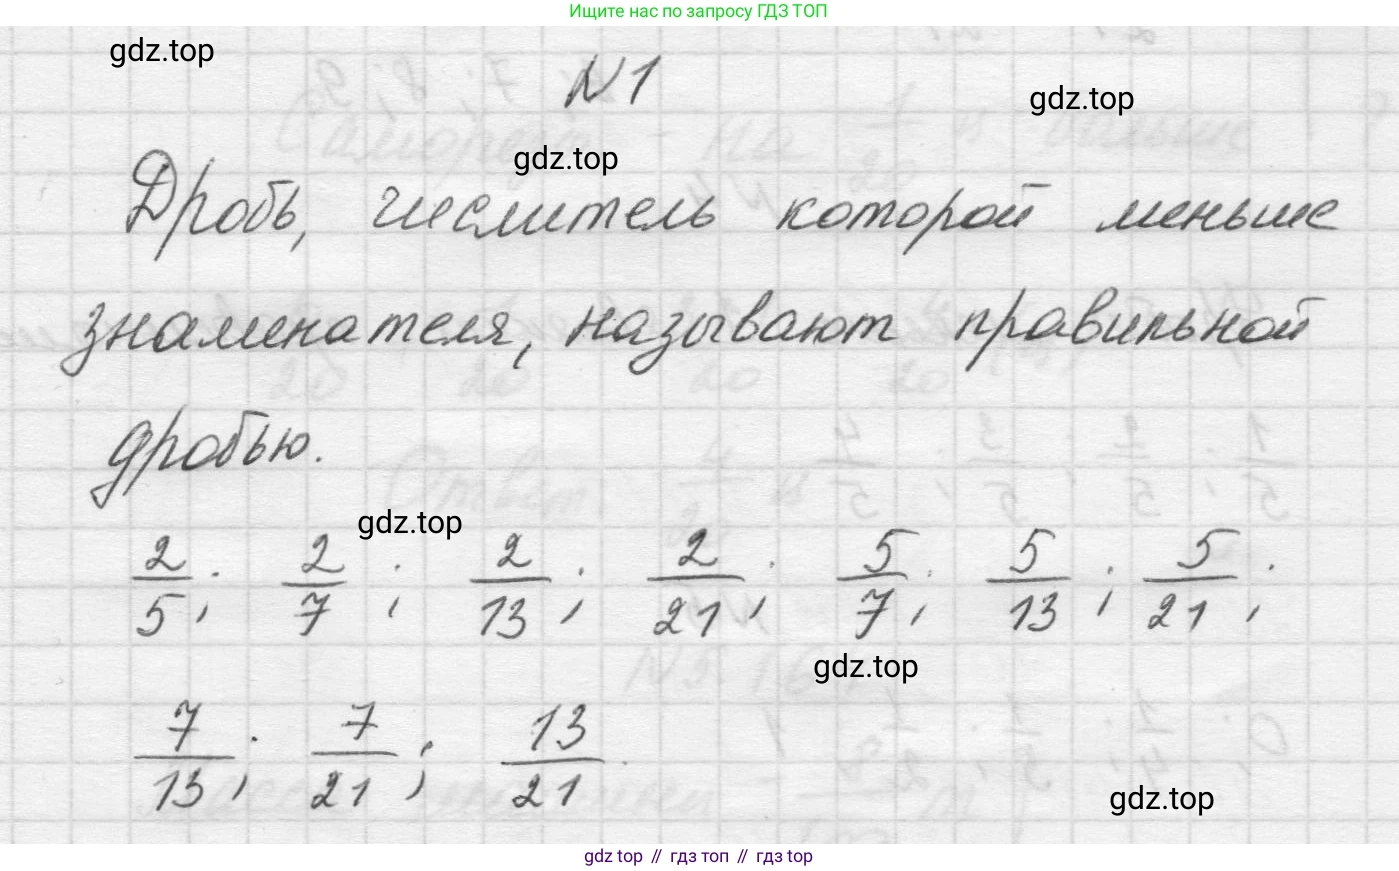 Ищите нас по запросу ГДЗ ТОП
gdz.top
N1
gdz.top
gdz.top
Дробь, числитель которой меньше
знаменателя, называют правильной
дробью.
gdz.top
2/5; 2/7; 2/13; 2/21; 5/7; 5/13; 5/21;
gdz.top
7/13; 7/21; 13/21.
gdz.top
gdz top // гдз топ // гдз top